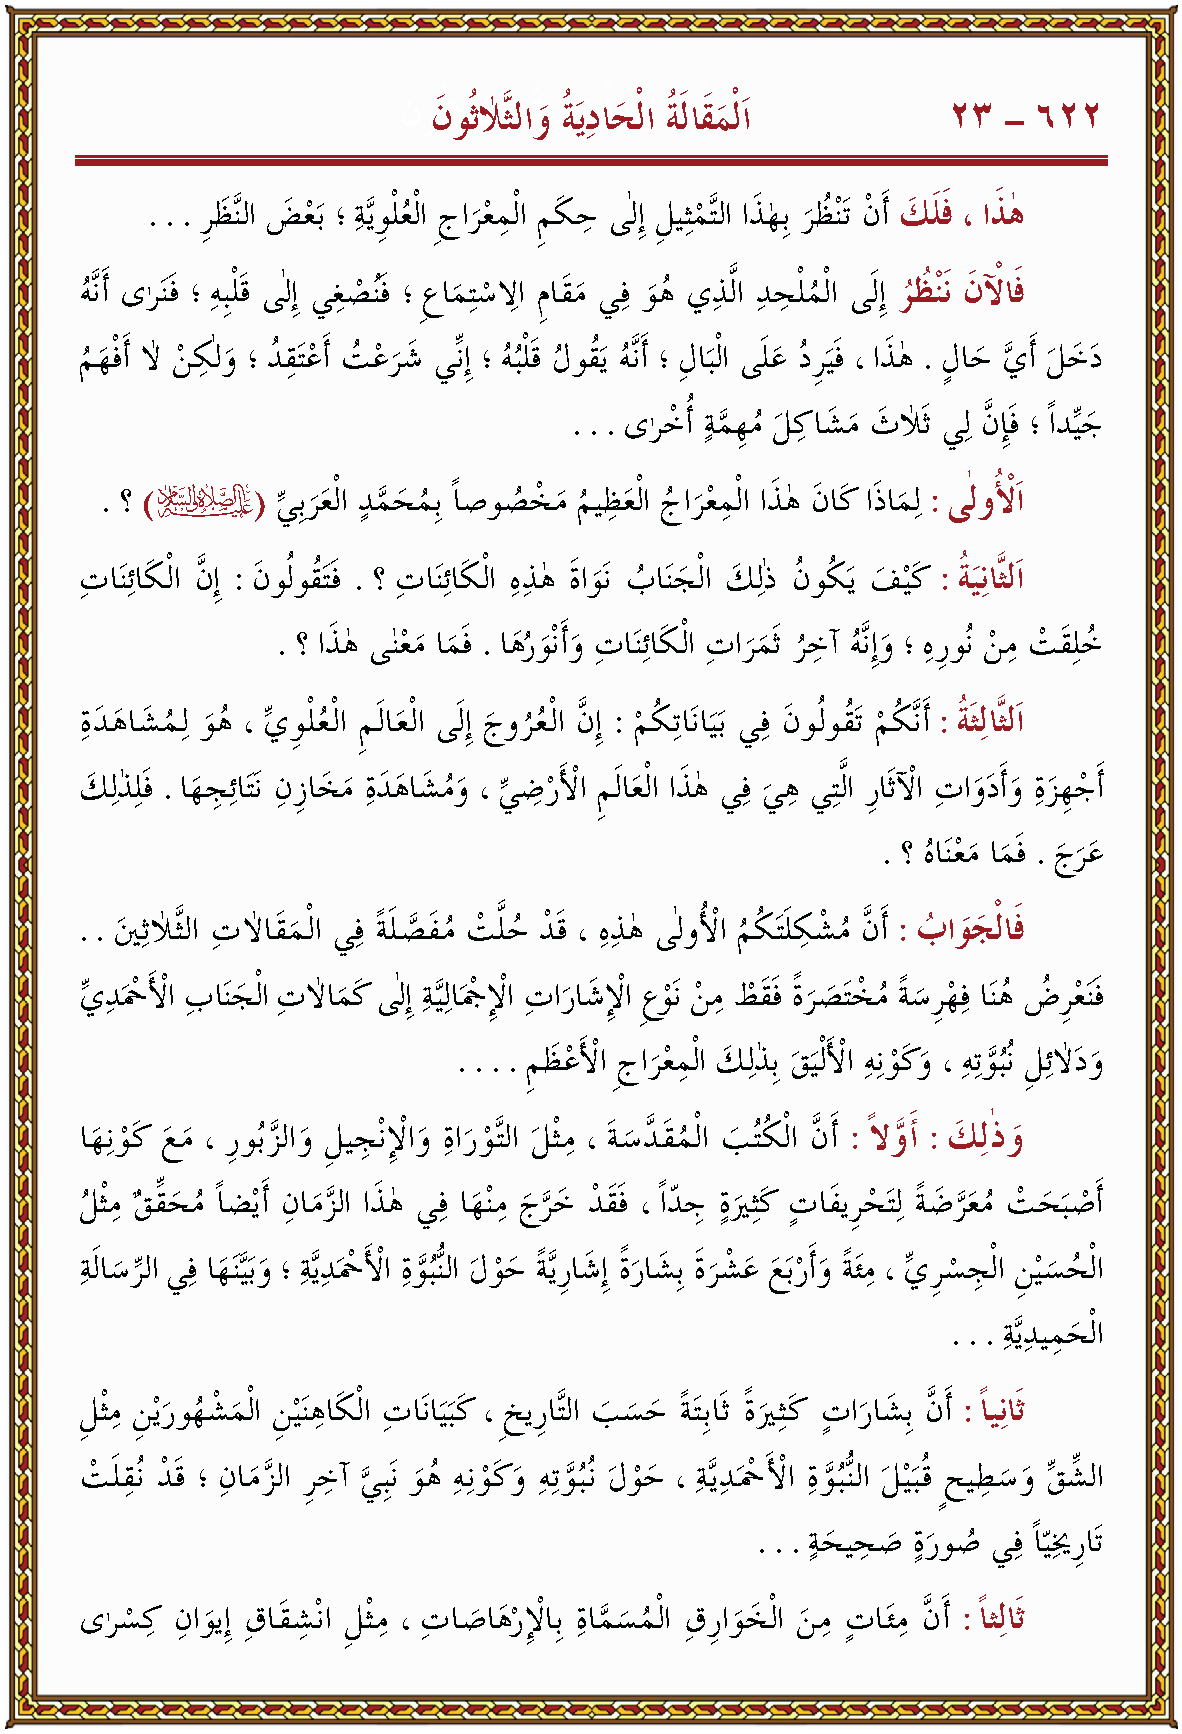 ٦٢٢ – ٢٣ اَلْمَقَالَةُ الْحَادِيَةُ وَالثَّلاٰثُونَ
هٰذَا ، فَلَكَ أَنْ تَنْظُرَ بِهٰذَا التَّمْثِيلِ إِلٰى حِكَمِ الْمِعْرَاجِ الْعُلْوِيَّةِ ؛ بَعْضَ النَّظَرِ . . .
فَاْلآنَ نَنْظُرُ إِلَى الْمُلْحِدِ الَّذِي هُوَ فِي مَقَامِ اْلاِسْتِمَاعِ ؛ فَنُصْغِي إِلٰى قَلْبِهِ ؛ فَنَرٰى أَنَّهُ
دَخَلَ أَيَّ حَالٍ . هٰذَا ، فَيَرِدُ عَلَى الْبَالِ ؛ أَنَّهُ يَقُولُ قَلْبُهُ ؛ إِنِّي شَرَعْتُ أَعْتَقِدُ ؛ وَلٰكِنْ لاٰ أَفْهَمُ
جَيِّداً ؛ فَإِنَّ لِي ثَلاٰثَ مَشَاكِلَ مُهِمَّةٍ أُخْرٰى . . .
اَلْأُولٰى : لِمَاذَا كَانَ هٰذَا الْمِعْرَاجُ الْعَظِيمُ مَخْصُوصاً بِمُحَمَّدٍ الْعَرَبِيِّ (عَلَيْهِ الصَّلاَةُ وَالسَّلاَمُ) ؟ .
اَلثَّانِيَةُ : كَيْفَ يَكُونُ ذٰلِكَ الْجَنَابُ نَوَاةَ هٰذِهِ الْكَائِنَاتِ ؟ . فَتَقُولُونَ : إِنَّ الْكَائِنَاتِ
خُلِقَتْ مِنْ نُورِهِ ؛ وَإِنَّهُ آخِرُ ثَمَرَاتِ الْكَائِنَاتِ وَأَنْوَرُهَا . فَمَا مَعْنٰى هٰذَا ؟ .
اَلثَّالِثَةُ : أَنَّكُمْ تَقُولُونَ فِي بَيَانَاتِكُمْ : إِنَّ الْعُرُوجَ إِلَى الْعَالَمِ الْعُلْوِيِّ ، هُوَ لِمُشَاهَدَةِ
أَجْهِزَةِ وَأَدَوَاتِ اْلآثَارِ الَّتِي هِيَ فِي هٰذَا الْعَالَمِ اْلأَرْضِيِّ ، وَمُشَاهَدَةِ مَخَازِنِ نَتَائِجِهَا . فَلِذٰلِكَ
عَرَجَ . فَمَا مَعْنَاهُ ؟ .
فَالْجَوَابُ : أَنَّ مُشْكِلَتَكُمُ اْلأُولٰى هٰذِهِ ، قَدْ حُلَّتْ مُفَصَّلَةً فِي الْمَقَالاٰتِ الثَّلاٰثِينَ . .
فَنَعْرِضُ هُنَا فِهْرِسَةً مُخْتَصَرَةً فَقَطْ مِنْ نَوْعِ اْلإِشَارَاتِ اْلإِجْمَالِيَّةِ إِلٰى كَمَالاٰتِ الْجَنَابِ اْلأَحْمَدِيِّ
وَدَلاٰئِلِ نُبُوَّتِهِ ، وَكَوْنِهِ اْلأَلْيَقَ بِذٰلِكَ الْمِعْرَاجِ اْلأَعْظَمِ . . . .
وَذٰلِكَ : أَوَّلاً : أَنَّ الْكُتُبَ الْمُقَدَّسَةَ ، مِثْلَ التَّوْرَاةِ وَاْلإِنْجِيلِ وَالزَّبُورِ ، مَعَ كَوْنِهَا
أَصْبَحَتْ مُعَرَّضَةً لِتَحْرِيفَاتٍ كَثِيرَةٍ جِدّاً ، فَقَدْ خَرَّجَ مِنْهَا فِي هٰذَا الزَّمَانِ أَيْضاً مُحَقِّقٌ مِثْلُ
الْحُسَيْنِ الْجِسْرِيِّ ، مِئَةً وَأَرْبَعَ عَشْرَةَ بِشَارَةً إِشَارِيَّةً حَوْلَ النُّبُوَّةِ اْلأَحْمَدِيَّةِ ؛ وَبَيَّنَهَا فِي الرِّسَالَةِ
الْحَمِيدِيَّةِ . . .
ثَانِياً : أَنَّ بِشَارَاتٍ كَثِيرَةً ثَابِتَةً حَسَبَ التَّارِيخِ ، كَبَيَانَاتِ الْكَاهِنَيْنِ الْمَشْهُورَيْنِ مِثْلِ
الشِّقِّ وَسَطِيحٍ قُبَيْلَ النُّبُوَّةِ اْلأَحْمَدِيَّةِ ، حَوْلَ نُبُوَّتِهِ وَكَوْنِهِ هُوَ نَبِيَّ آخِرِ الزَّمَانِ ؛ قَدْ نُقِلَتْ
تَارِيخِيّاً فِي صُورَةٍ صَحِيحَةٍ . . .
ثَالِثاً : أَنَّ مِئَاتٍ مِنَ الْخَوَارِقِ الْمُسَمَّاةِ بِاْلإِرْهَاصَاتِ ، مِثْلِ انْشِقَاقِ إِيوَانِ كِسْرٰى